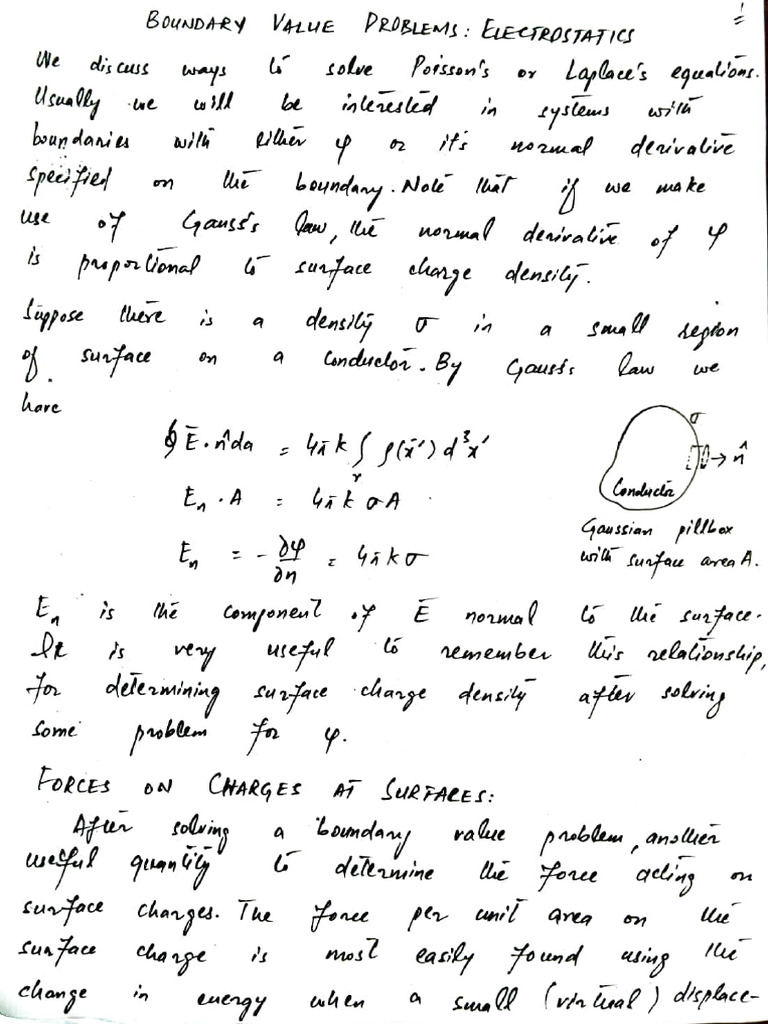 BOUNDARY VALUE PROBLEMS: ELECTROSTATICS
We discuss ways to solve Poisson's or Laplace's equations.
Usually we will be interested in systems with
boundaries with either φ or it's normal derivative
specified on the boundary. Note that if we make
use of Gauss's law, the normal derivative of φ
is proportional to surface charge density.
Suppose there is a density σ in a small region
of surface on a conductor. By Gauss's law we
have
∮ Ē·n̂ da = 4πk ∫ᵥ ρ(x̄') d³x'
Eₙ · A = 4πk σA
Eₙ = -∂φ/∂n = 4πkσ
σ
n̂
Conductor
Gaussian pillbox
with surface area A.
Eₙ is the component of Ē normal to the surface.
It is very useful to remember this relationship,
for determining surface charge density after solving
some problem for φ.
FORCES ON CHARGES AT SURFACES:
After solving a boundary value problem, another
useful quantity to determine the force acting on
surface charges. The force per unit area on the
surface charge is most easily found using the
change in energy when a small (virtual) displace-